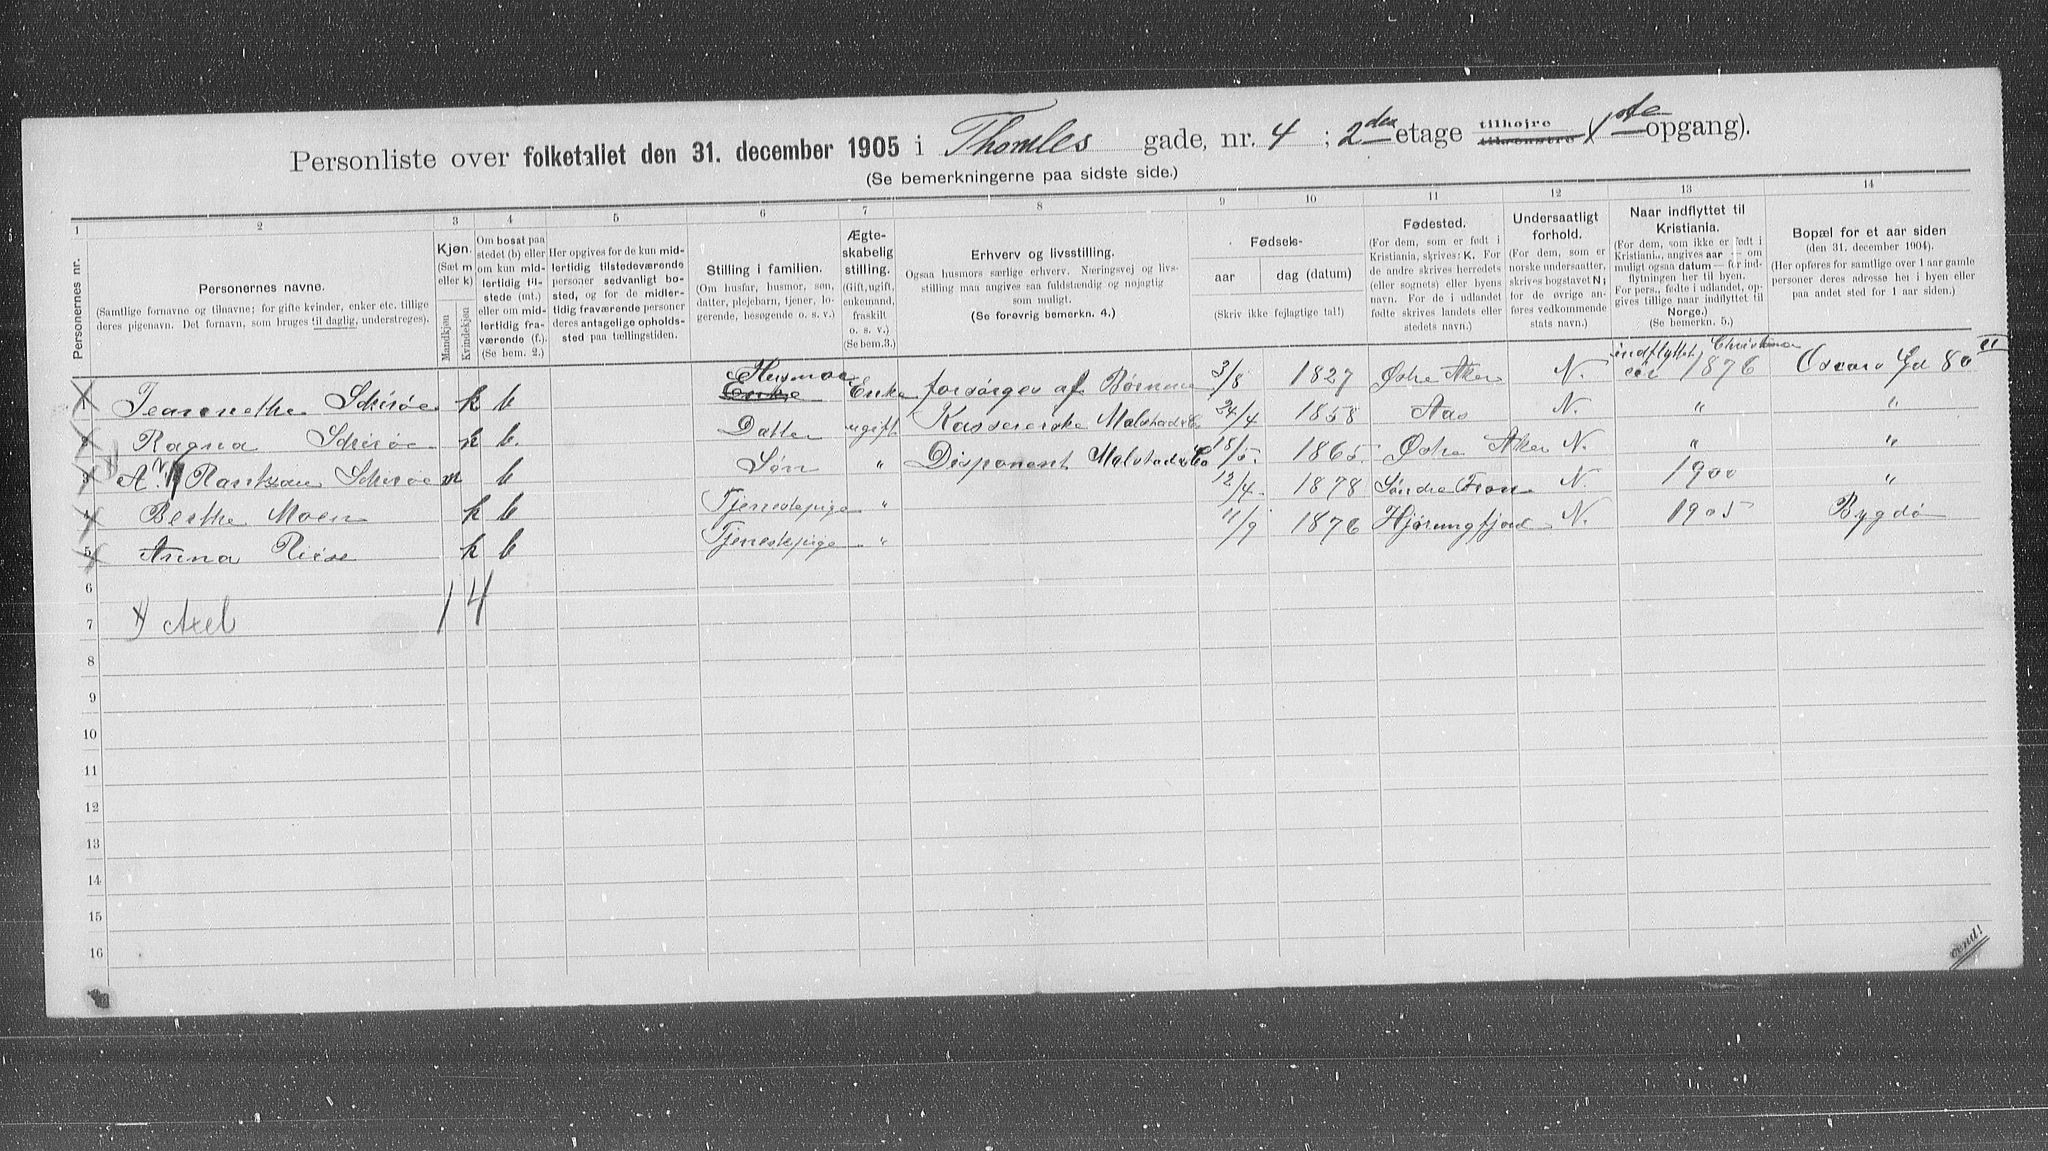 Personliste over folketallet den 31. december 1905 i Thomles gade, nr. 4 ; 2den etage tilhøjre tilvenstre (1ste opgang).
(Se bemerkningerne paa sidste side.)
1 2 3 4 5 6 7 8 9 10 11 12 13 14
Personernes nr.
Personernes navne.
(Samtlige fornavne og tilnavne; for gifte kvinder, enker etc. tillige
deres pigenavn. Det fornavn, som bruges til daglig, understreges).
Kjøn.
(Sæt m
eller k)
Mandkjøn
Kvindekjøn
Om bosat paa
stedet (b) eller
om kun mid-
lertidig til-
stede (mt.)
eller om mid-
lertidig fra-
værende (f.).
(Se bem. 2.)
Her opgives for de kun mid-
lertidig tilstedeværende
personer sedvanligt bo-
sted, og for de midler-
tidig fraværende personer
deres antagelige opholds-
sted paa tællingstiden.
Stilling i familien.
(Om husfar, husmor, søn,
datter, plejebarn, tjener, lo-
gerende, besøgende o. s. v.)
Ægte-
skabelig
stilling.
(Gift, ugift,
enkemand,
fraskilt
o. s. v.)
(Se bem.3.)
Erhverv og livsstilling.
Ogsaa husmors særlige erhverv. Næringsvej og livs-
stilling maa angives saa fuldstændig og nøjagtig
som muligt.
(Se forøvrig bemerkn. 4.)
Fødsels-
aar dag (datum)
(Skriv ikke fejlagtige tal!)
Fødested.
(For dem, som er født i
Kristiania, skrives: K. For
de andre skrives herredets
(eller sognets) eller byens
navn. For de i udlandet
fødte skrives landets eller
stedets navn.)
Undersaatligt
forhold.
(For dem, som er
norske undersaatter,
skrives bogstavet N;
for de øvrige an-
føres vedkommende
stats navn.)
Naar indflyttet til
Kristiania.
(For dem, som ikke er født i
Kristiania, angives aar — om
muligt ogsaa datum — for ind-
flytningen her til byen.
For pers., fødte i udlandet, op-
gives tillige naar indflyttet til
Norge.)
(Se bemerkn. 5.)
Bopæl for et aar siden
(den 31. december 1904).
(Her opføres for samtlige over 1 aar gamle
personer deres adresse her i byen eller
paa andet sted for 1 aar siden.)
1 Jeannethe Schrøe k b Husmor Enke Enke forsørges af Børnene 3/8 1827 Østre Aker N. indflyttet Christiania 1876 Oscars Gd 80 II
2 Ragna k b. Datter ugift Kassererske Malstad & Co 24/4 1858 Aas N. " "
3 A. Rantzau m b Søn " Disponent Malstad & Co 18/5. 1865 Østre Aker N. " "
4 Berthe Moen k b Tjenestepige " 12/4. 1878 Søndre Fron N. 1900 "
5 Anna Riise k b Tjenestepige " 11/9 1876 Hjørungfjord N. 1905 Bygdø
6 1 4
7 x) Axel
8
9
10
11
12
13
14
15
16
vend!